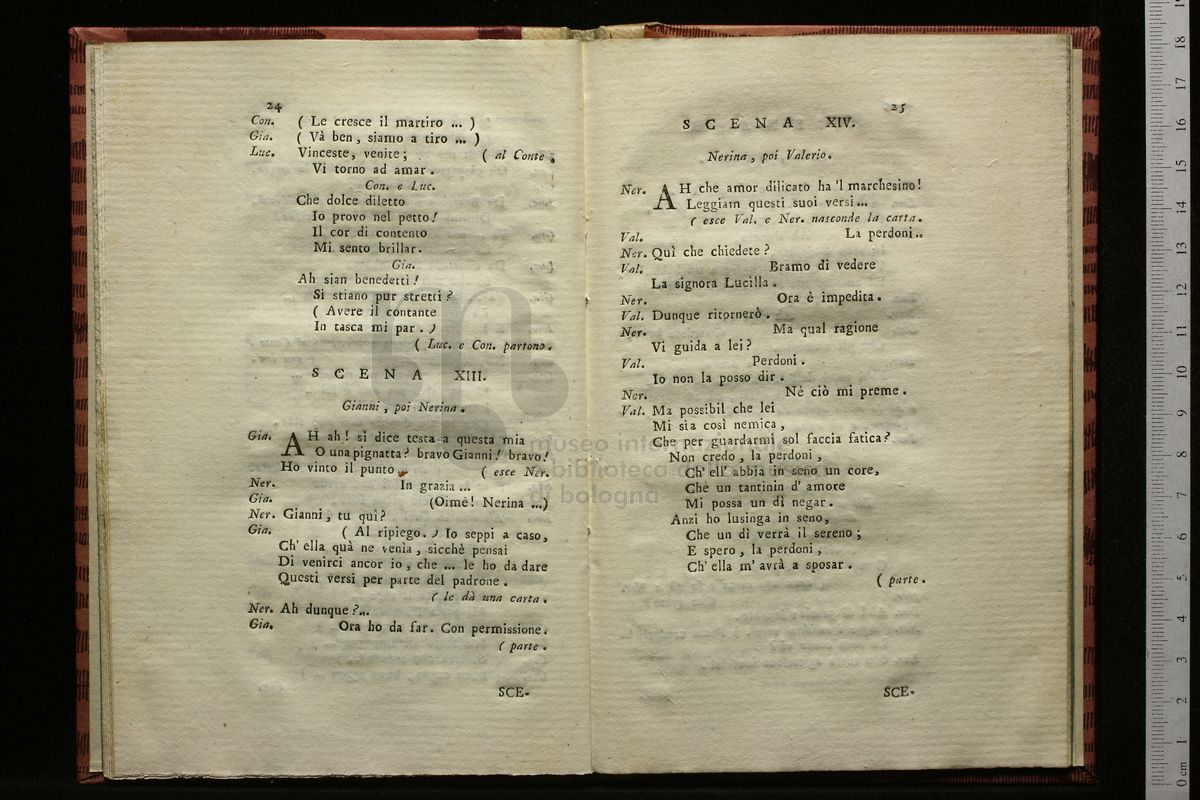 24
Con. ( Le cresce il martiro ... )
Gia. ( Và ben, siamo a tiro ... )
Luc. Vinceste, venite; ( al Conte ;
Vi torno ad amar.
Con. e Luc.
Che dolce diletto
Io provo nel petto!
Il cor di contento
Mi sento brillar.
Gia.
Ah sian benedetti!
Si stiano pur stretti?
( Avere il contante
In tasca mi par. )
( Luc. e Con. partono.
SCENA XIII.
Gianni, poi Nerina.
Gia. AH ah! si dice testa a questa mia
O una pignatta? bravo Gianni! bravo!
Ho vinto il punto ( esce Ner.
Ner. In grazia ...
Gia. (Oimè! Nerina ...)
Ner. Gianni, tu quì?
Gia. ( Al ripiego. ) Io seppi a caso,
Ch' ella quà ne venìa, sicchè pensai
Di venirci ancor io, che ... le ho da dare
Questi versi per parte del padrone.
( le dà una carta.
Ner. Ah dunque?...
Gia. Ora ho da far. Con permissione.
( parte.
SCE-
25
SCENA XIV.
Nerina, poi Valerio.
Ner. AH che amor dilicato ha 'l marchesino!
Leggiam questi suoi versi ...
( esce Val. e Ner. nasconde la carta.
Val. La perdoni..
Ner. Quì che chiedete?
Val. Bramo di vedere
La signora Lucilla.
Ner. Ora è impedita.
Val. Dunque ritornerò.
Ner. Ma qual ragione
Vi guida a lei?
Val. Perdoni.
Io non la posso dir.
Ner. Nè ciò mi preme.
Val. Ma possibil che lei
Mi sia così nemica,
Che per guardarmi sol faccia fatica?
Non credo, la perdoni,
Ch' ell' abbia in seno un core,
Che un tantinin d' amore
Mi possa un dì negar.
Anzi ho lusinga in seno,
Che un dì verrà il sereno;
E spero, la perdoni,
Ch' ella m' avrà a sposar.
( parte.
SCE-
museo
biblioteca
di bologna
0 cm 1 2 3 4 5 6 7 8 9 10 11 12 13 14 15 16 17 18